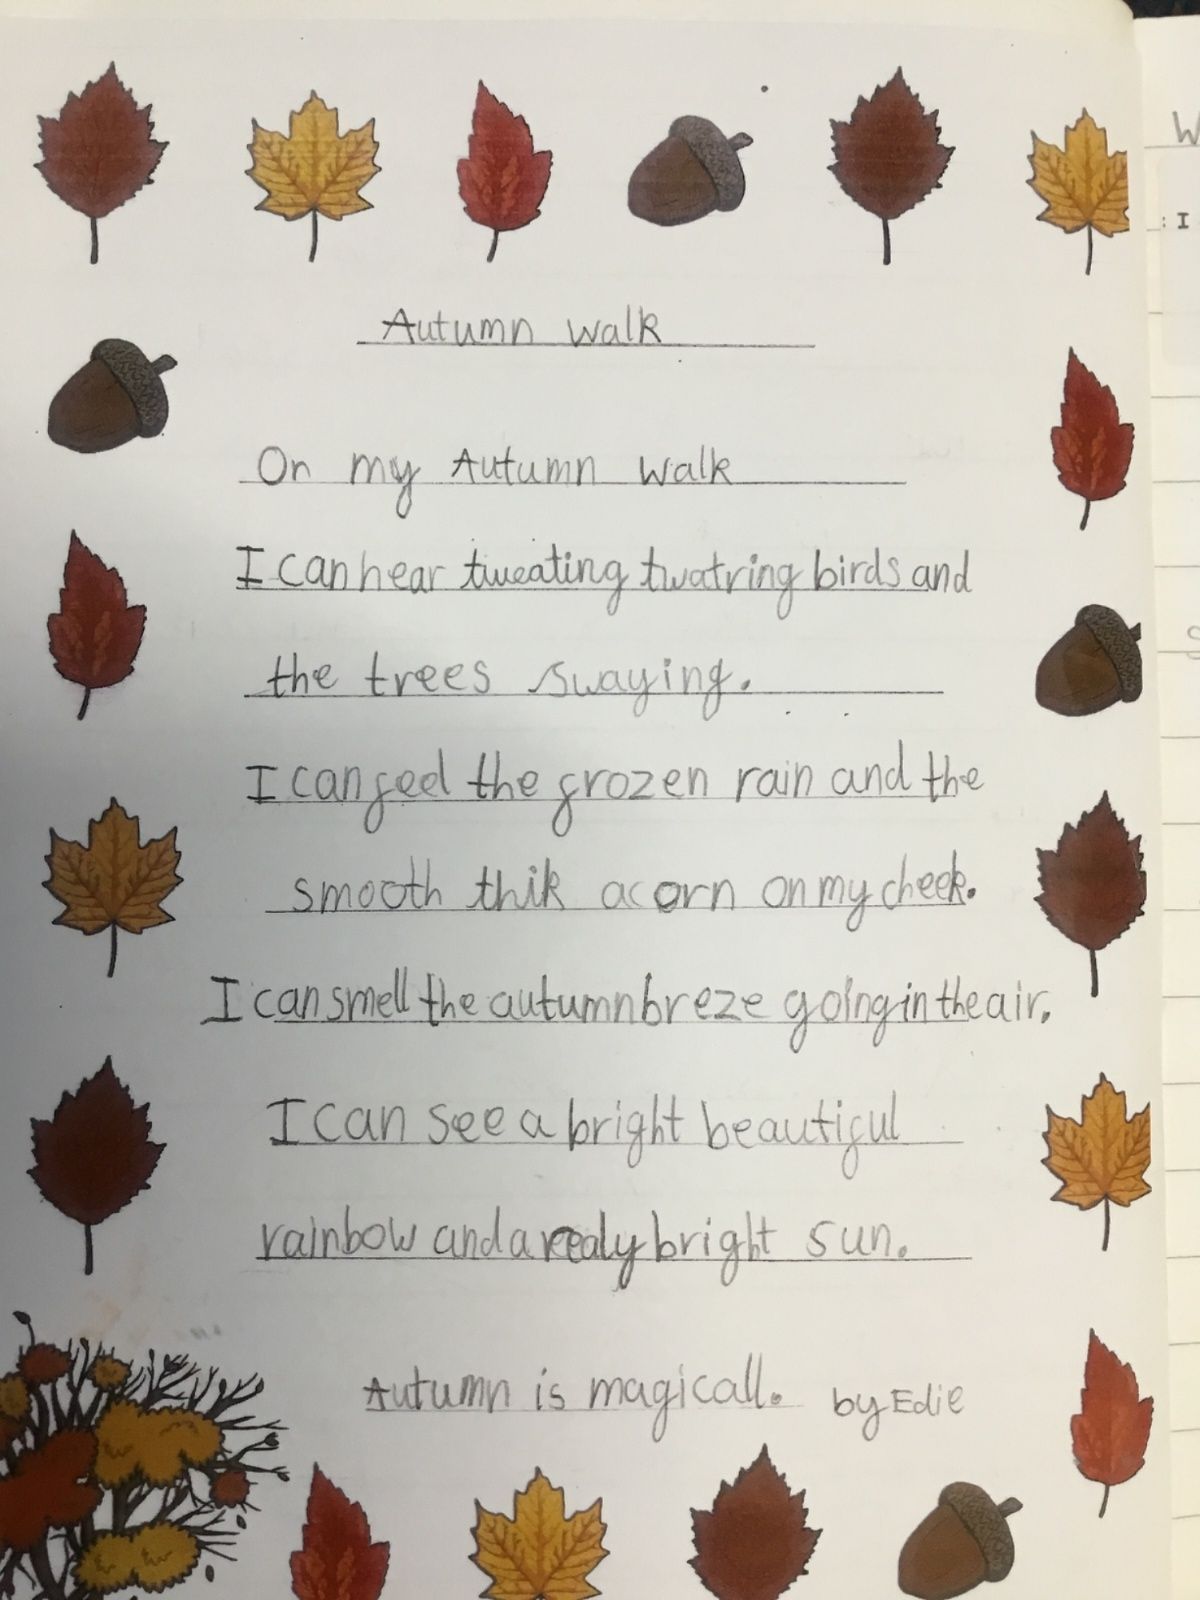 Autumn walk
On my Autumn walk
I can hear tweating twatring birds and
the trees swaying.
I can feel the frozen rain and the
smooth thik acorn on my cheek.
I can smell the autumn breze going in the air.
I can see a bright beautiful
rainbow and a realy bright sun.
Autumn is magicall. by Edie
W
: I